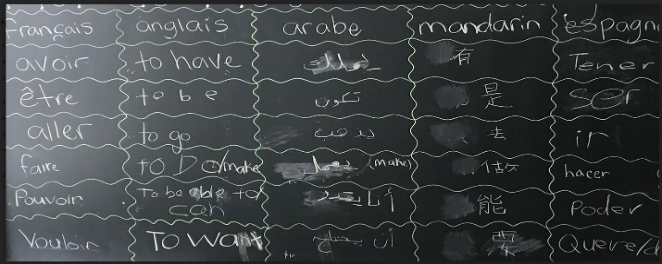 français anglais arabe mandarin espagn
avoir to have 有 Tener
être to be تكون 是 ser
aller to go 去 ir
faire TO DO/make (make) hacer
Pouvoir To be able to 能 Poder
can
Vouloir TO Want أن 要